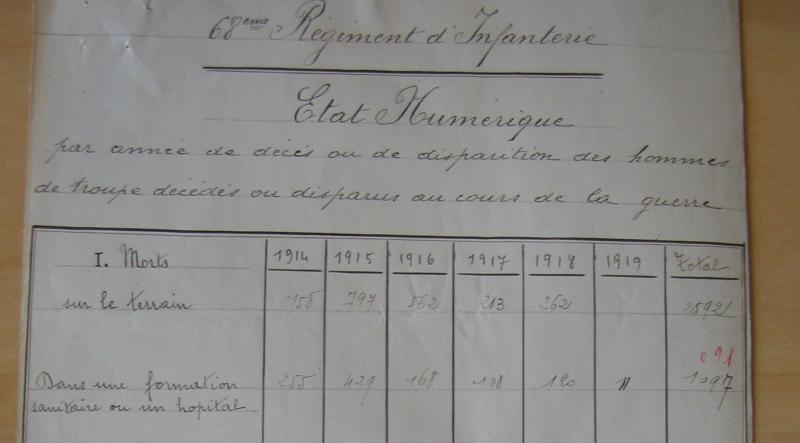 68eme Régiment d'Infanterie
Etat Numérique
par année de décès ou de disparition des hommes
de troupe décédés ou disparus au cours de la guerre
I. Morts 1914 1915 1916 1917 1918 1919 Total
sur le terrain 758 797 562 213 262 2592
091
Dans une formation 255 429 168 108 120 11 1097
sanitaire ou un hopital